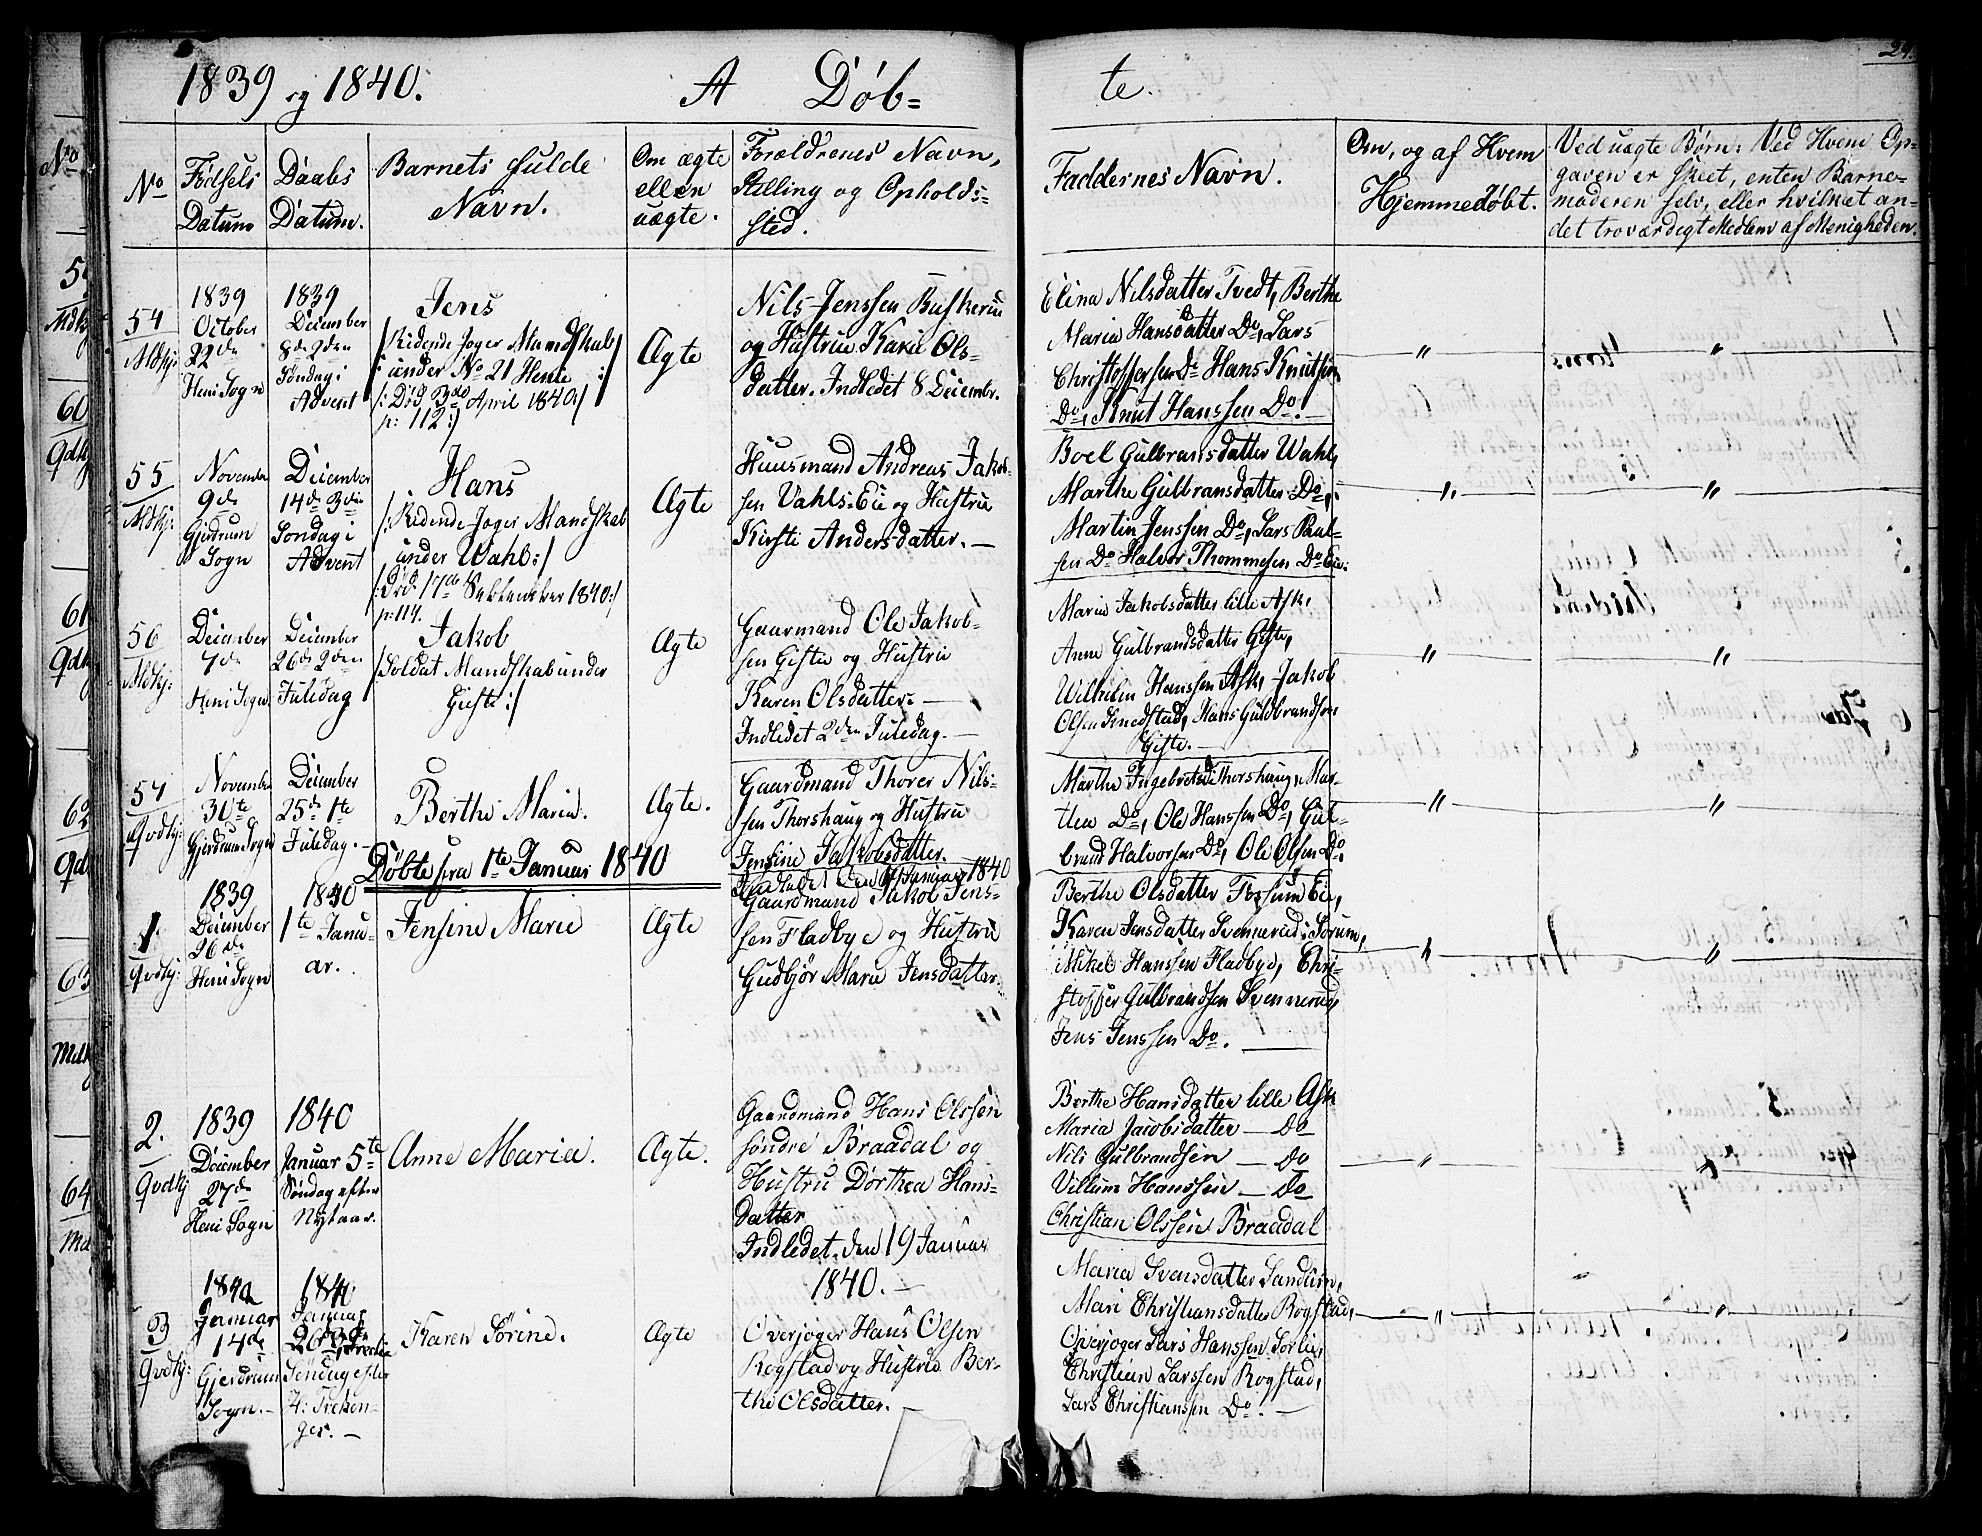 24.
1839 og 1840. A Døb=
te.
No
Fødsels
Datum
Daabs
Datum.
Barnets fulde
Navn.
Om ægte
eller
uægte.
Forældrenes Navn,
Stilling og Opholds=
sted.
Faddernes Navn.
Om, og af Hvem
Hjemmedøbt.
Ved uægte Børn: Ved Hvem Op=
gaven er skeet, enten Barne=
moderen selv, eller hvilket an=
det troværdigt Medlem af Menigheden.
54
Mdkj:
1839
October
22de
Heni Sogn
1839
December
8de 2den
Søndag i
Advent
Jens
/:Ridende Jæger Mandskab
under No 21 Henie :/
/:Død 3die April 1840:/
p: 112:/
Ægte
Nils Jenssen Buskerud
og Hustrue Karie Ols=
datter. Indledet 8 Decembr.
Elina Nilsdatter Tvedt, Berthe
Maria Hansdatter Do, Lars
Christoffersen Do Hans Knutsen
Do, Knut Hanssen Do.
" "
55
Mdkj:
November
9de
Gjerdrum
Sogn
December
14de 3die
Søndag i
Advent
Hans
/:Ridende Jæger Mandskab
under Wahl:/
/:Død 17de September 1840:/
p: 114.
Ægte
Huusmand Andreas Jakob=
sen Vahls=Eie og Hustrue
Kirsti Andersdatter.
Boel Gulbransdatter Wahl,
Marthe Gulbransdatter Do,
Martin Jenssen Do, Lars Paul=
sen Do Halvor Thommesen Do Eie.
" "
56
Mdkj:
December
7de
Heni Sogn
December
26de 2den
Juledag
Jakob
/:Soldat Mandskab under
Gifte:/
Ægte
Gaarmand Ole Jakob=
sen Giftie og Hustrue
Karen Olsdatter.
Indledet 2den Juledag.
Maria Jakobsdatter lille Ask,
Anne Gulbrandsdatter Gifte,
Wilhelm Hanssen Ask, Jakob
Olsen Smedstad, Hans Guldbrandsen
Gifte.
" "
57
Qvdkj:
November
30te
Gjerdrum Sogn
December
25de 1te
Juledag.
Berthe Maria.
Ægte.
Gaardmand Thorer Nils=
sen Thorshaug og Hustrue
Jensine Jakobsdatter.
Marthe Ingebretsd. Thorshaug, Mar=
thea Do, Ole Hanssen Do, Gul=
brand Halvorsen Do, Ole Olsen Do.
" "
Døbte fra 1te Januar 1840
Indledet den Januar 1840
1
Qvdkj:
1839
December
26de
Heni Sogn
1840
1te Janu=
ar.
Jensine Marie
Ægte
Gaardmand Jakob Jens=
sen Fladbye og Hustrue
Gudbjør Marie Jensdatter.
Berthe Olsdatter Fossum Eie,
Karen Jensdatter Svennerud: Sørum,
Mikel Hanssen Fladbye, Chri=
stoffer Gulbrandsen Svennerud,
Jens Jenssen Do.
" "
2.
Qvdkj
1839
December
27de
Heni Sogn
1840
Januar 5te
Søndag efter
Nytaar.
Anne Maria.
Ægte.
Gaardmand Hans Olssen
søndre Braadal og
Hustru Dorthea Hans=
datter
Indledet den 19 Januar
1840.
Berthe Hansdatter lille Ask
Maria Jacobsdatter - Do
Nils Gulbrandsen - Do
Villum Hanssen - Do
Christian Olssen Braadal
"
3
Qvdkj:
1840
Januar
14de
Gjerdrum
Sogn.
1840
Januar
26de
Søndag efter
H: Trekon=
ger.
Karen Sørine.
Ægte
Overjæger Hans Olsen
Rogstad og Hustrue Ber=
the Olsdatter.
Maria Svensdatter Sandum,
Mari Christiansdatter Rogstad,
Overjæger Lars Hanssen Sørlie,
Christian Larssen Rogstad,
Lars Christianssen Do.
" "
60
Qdkj
61
Qdkj
62
Qdk
63
Mdk
64
Md